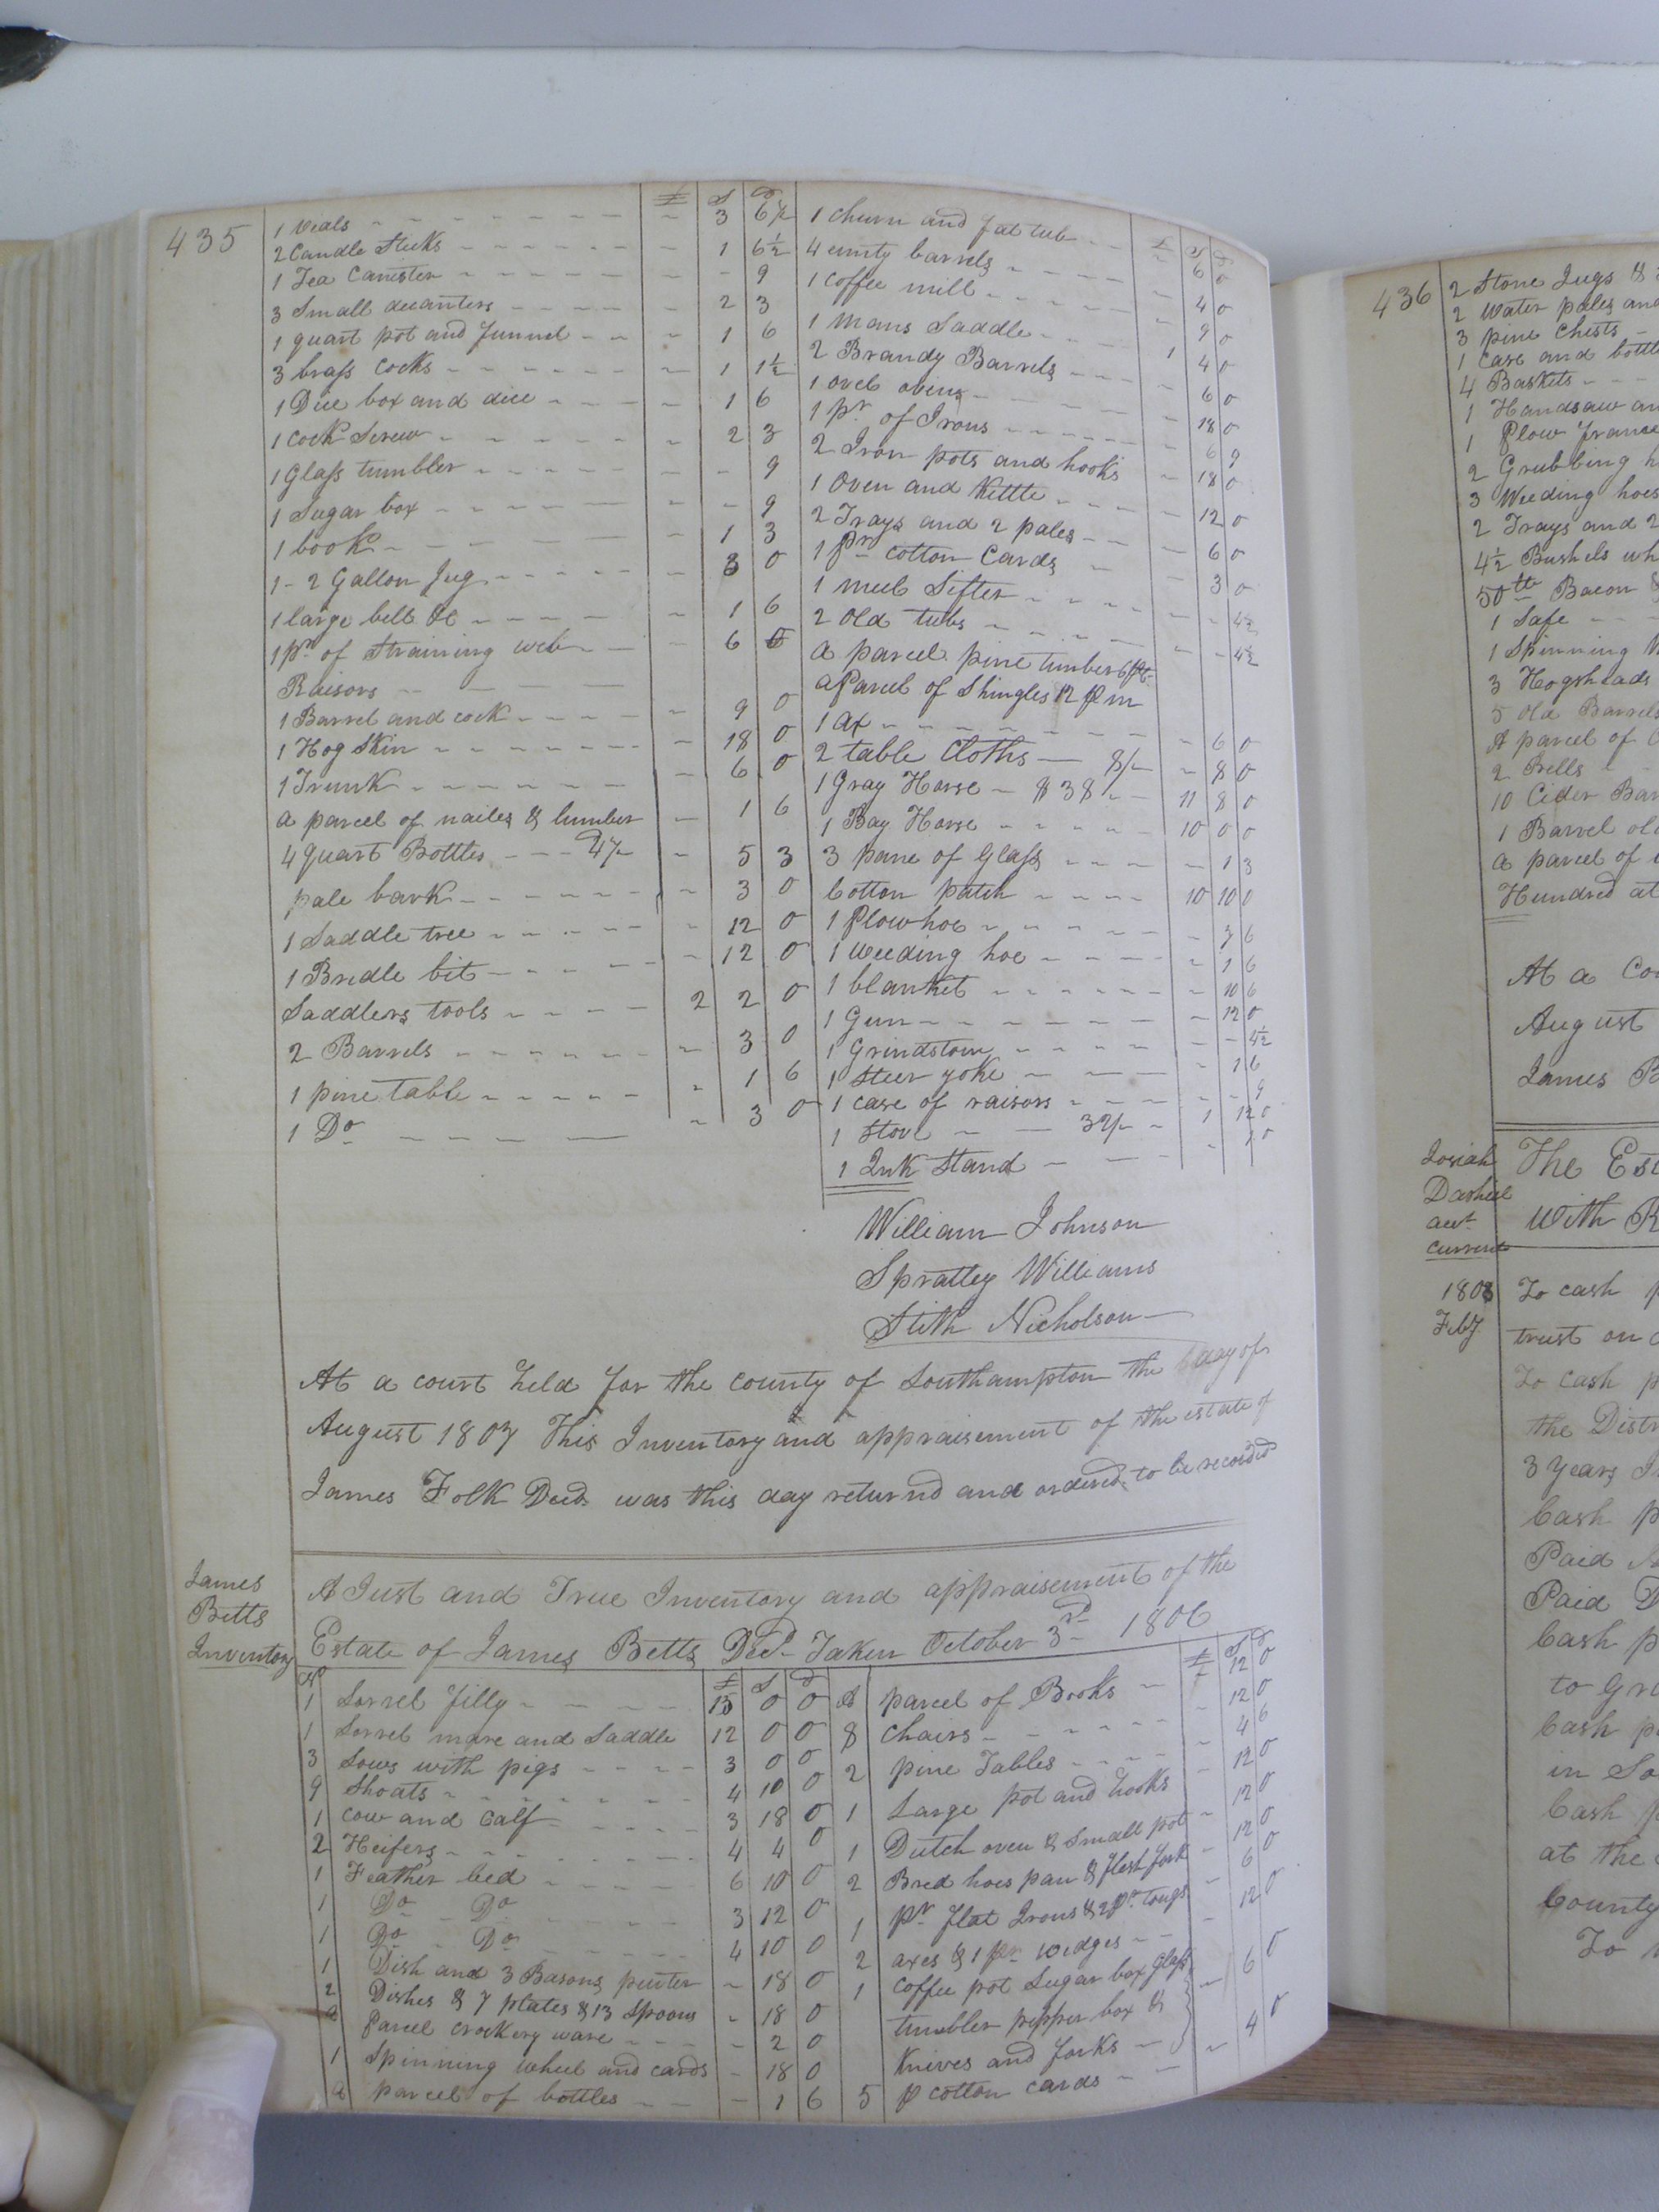 435
£ S D
1 Veals - 3 6½
2 Candle Sticks - 1 6½
1 Tea Canister - - 9
3 Small decanters 2 3
1 quart pot and funnel - 1 6
3 brass Cocks - 1 1½
1 Dice box and dice - 1 6
1 Cock Screw - 2 3
1 Glass tumbler - - 9
1 Sugar box - - 9
1 book 1 3
1-2 Gallon Jug - 3 0
1 large bell &c - 1 6
1 pr of Straining web - 6 0
Raisors
1 Barrel and cock - 9 0
1 Hog Skin - 18 0
1 Trunk - 6 0
a parcel of nailes & lumber - 1 6
4 quart Bottles - 5 3
pale bark - 3 0
1 Saddle tree - 12 0
1 Bredle bit - 12 0
Saddlers tools 2 2 0
2 Barrels - 3 0
1 pine table - 1 6
1 Do - 3 0
£ S D
1 churn and fat tub - 6 0
4 emty barrels - 4 0
1 Coffee mill - 9 0
1 Mans Saddle 1 4 0
2 Brandy Barrels - 6 0
1 ovel - 18 0
1 pr of Irons - 6 9
2 Iron pots and hooks - 18 0
1 Oven and Kettle - 12 0
2 Trays and 2 pales - 6 0
1 pr cotton Cards - 3 0
1 meel Sifter - - 4½
2 Old tubs - - 4½
a parcel pine timber
a Parcel of Shingles 12 p m
1 ax - 6 0
2 table Cloths 8/- - 8 0
1 Gray Horse - $38 11 8 0
1 Bay Horse 10 0 0
3 pane of Glass - 1 3
Cotton patch 10 10 0
1 Plow hoe - 3 6
1 weeding hoe - 1 6
1 blanket - 10 6
1 Gun - 12 0
1 Grindstone - - 4½
1 Steer yoke - 1 6
1 case of raisors - - 9
1 Stove 32/- 1 12 0
1 Ink Stand - 1 0
William Johnson
Spratley Williams
Stith Nicholson
At a court held for the county of Southampton the day of
August 1807 This Inventory and appraisement of the estate of
James Folk Decd was this day returnd and ordered to be recorded
James
Betts
Inventory
A Just and True Inventory and appraisement of the
Estate of James Betts Decd Taken October 3rd 1806
£ S D
1 Sorrel filly 15 0 0
1 Sorrel mare and Saddle 12 0 0
3 Sows with pigs 3 0 0
9 Shoats 4 10 0
1 Cow and Calf 3 18 0
2 Heifers 4 4 0
1 Feather bed 6 10 0
1 Do Do 3 12 0
1 Do Do 4 10 0
1 Dish and 3 Basons pewter - 18 0
2 Dishes & 7 plates & 13 Spoons - 18 0
a Parcel crockery ware - 2 0
1 Spinning wheel and cards - 18 0
a parcel of bottles - 1 6
£ S D
A parcel of Books - 12 0
8 Chairs - 12 0
2 pine Tables - 4 6
1 Large pot and hooks - 12 0
1 Dutch oven & Small pot - 12 0
2 Bred hoes pan & flesh fork - 12 0
1 pr flat Irons & 2 pr tongs - 6 0
2 axes & 1 pr wedges - 12 0
1 Coffee pot Sugar box Glass
tumbler pepper box &
Knives and forks - 6 0
5 p cotton cards - 4 0
436
2 Stone Jugs &
2 Water pales and
3 pine Chests
1 Case and bottle
4 Baskets
1 Handsaw an
1 Plow
2 Grubbing h
3 Weeding hoes
2 Trays and 2
4½ Bushels wh
50 lb Bacon
1 Safe
1 Spinning W
3 Hogsheads
5 Old Barrels
A parcel of
2 Bells
10 Cider Bar
1 Barrel old
a parcel of
Hundred at
At a Co
August
James B
Josiah
Dashiel
acct
Current
The Est
with R
1808
Feby
To cash p
trust on
To Cash p
the Distr
3 Years In
Cash p
Paid
Paid D
Cash p
to Gr
Cash p
in So
Cash p
at the
County
To